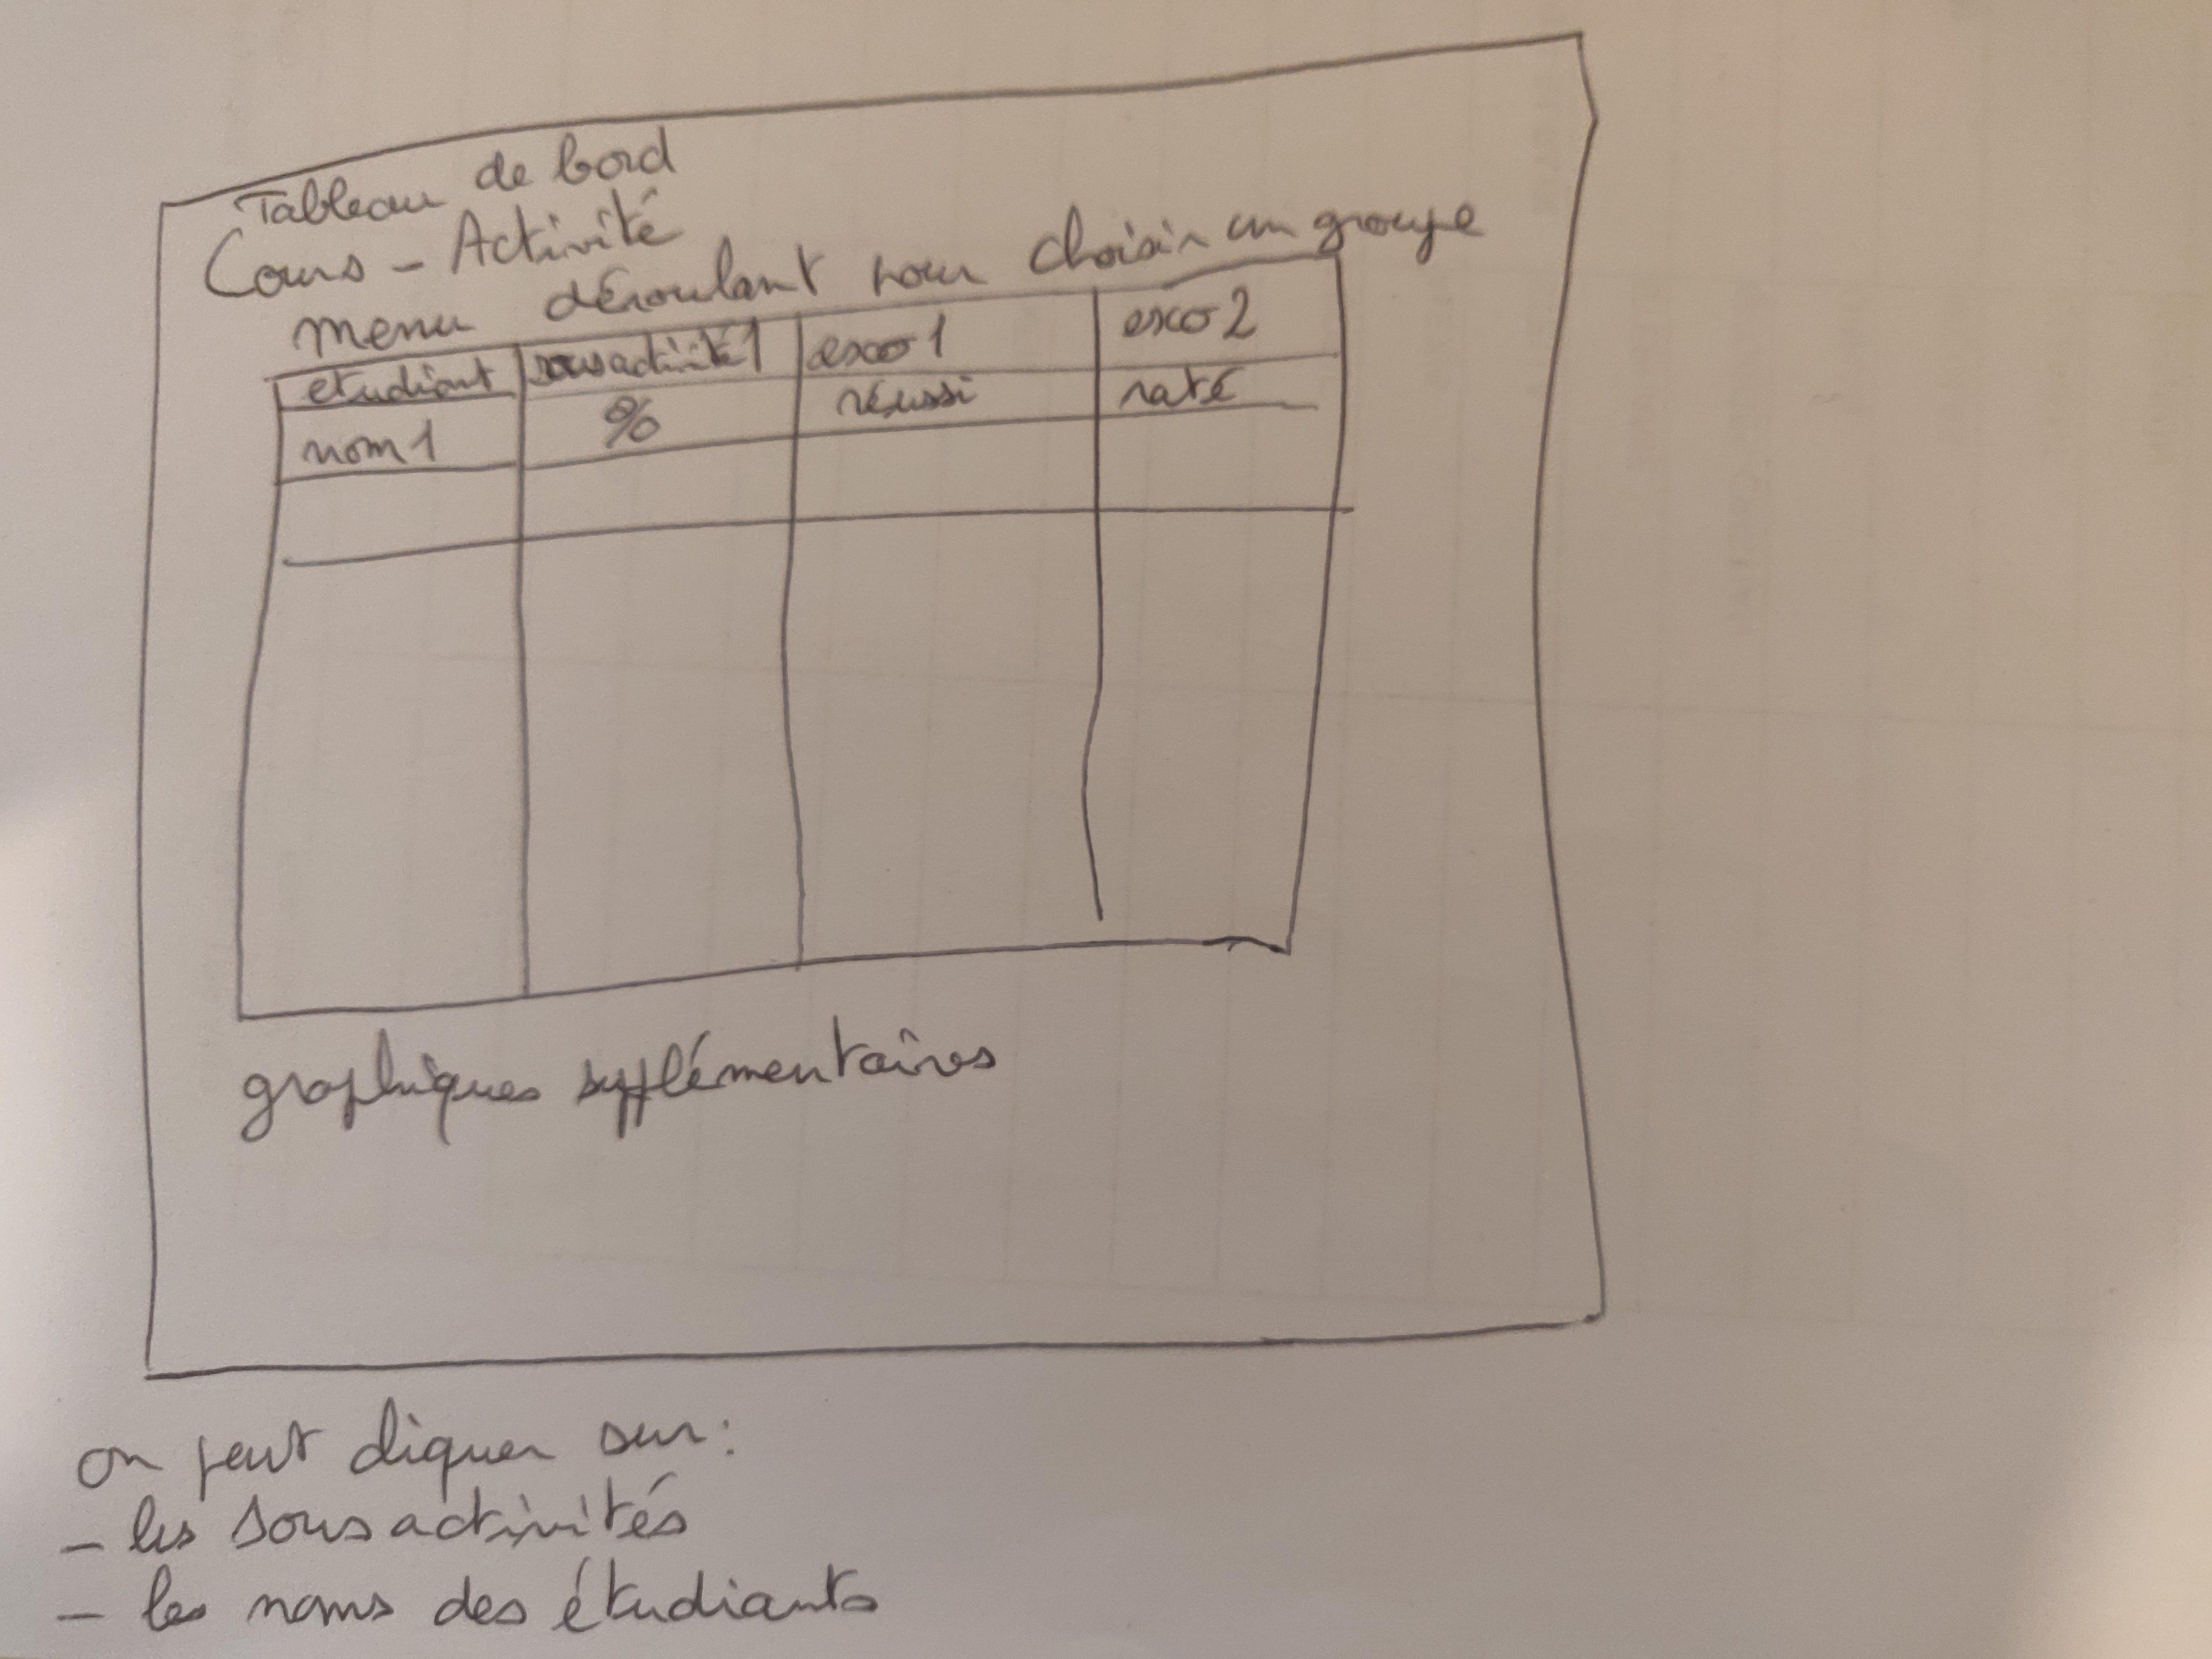 Tableau de bord
Cours - Activité
menu déroulant pour choisir un groupe
etudiant sous activité 1 exo 1 exo 2
nom 1 % réussi raté
graphiques supplémentaires
on peut cliquer sur:
- les sous activités
- les noms des étudiants